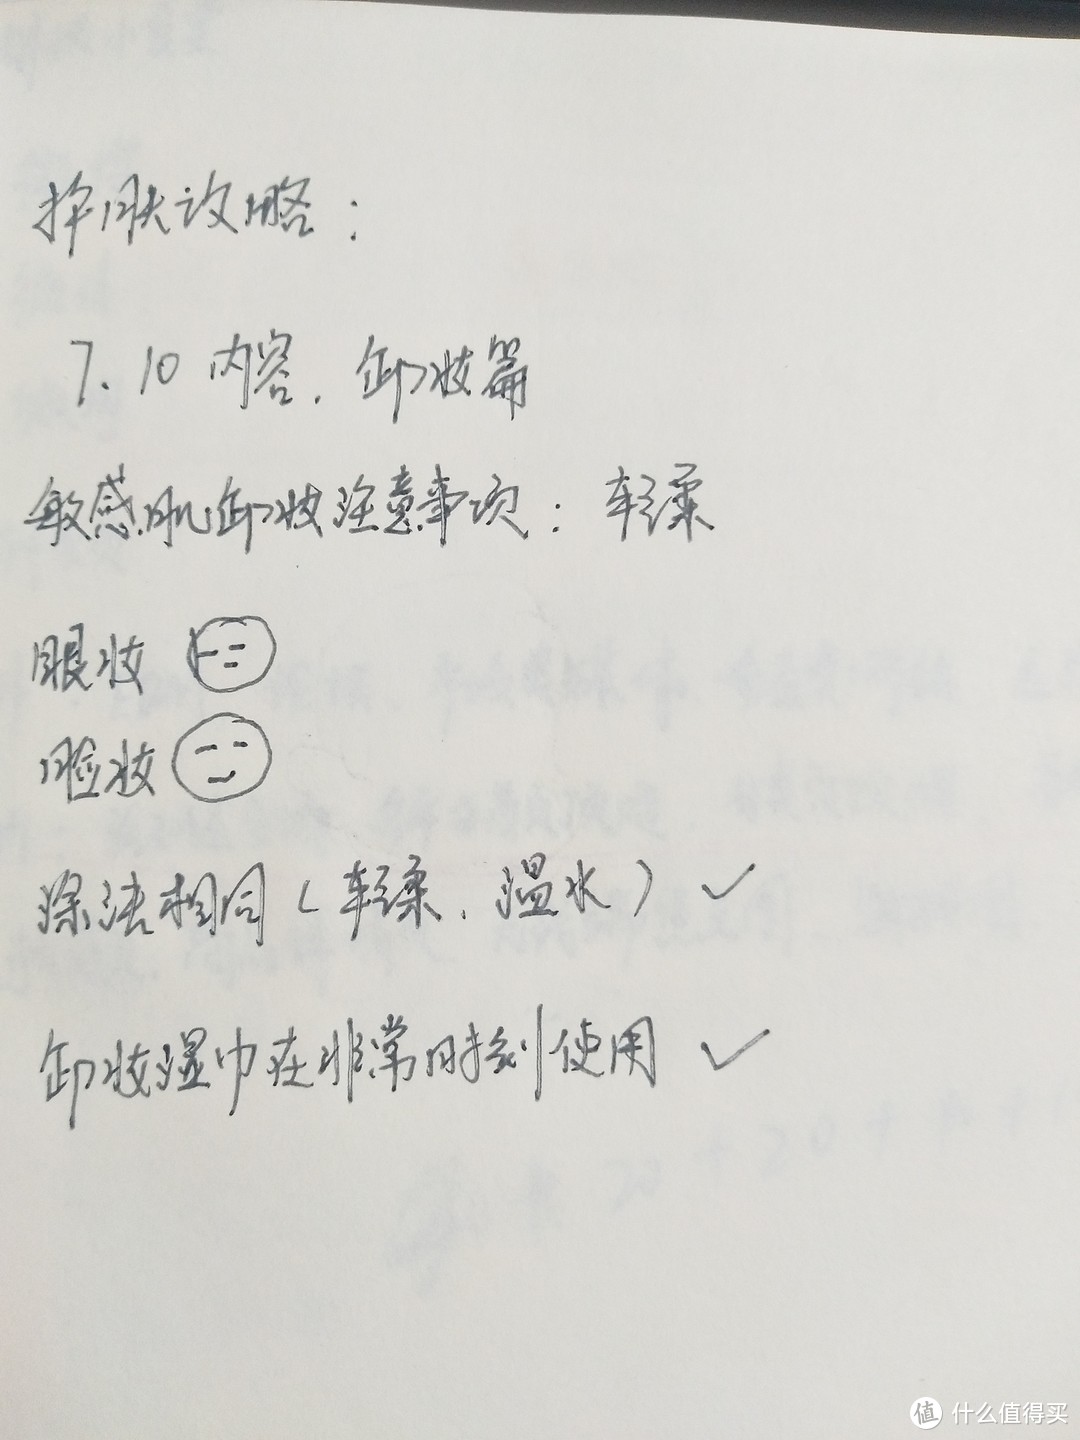 择肤攻略：
7.10 内容. 卸妆篇
敏感肌卸妆注意事项：轻柔
眼妆
脸妆
涂法相同（轻柔.温水）✓
卸妆湿巾在非常时刻使用 ✓
值 什么值得买